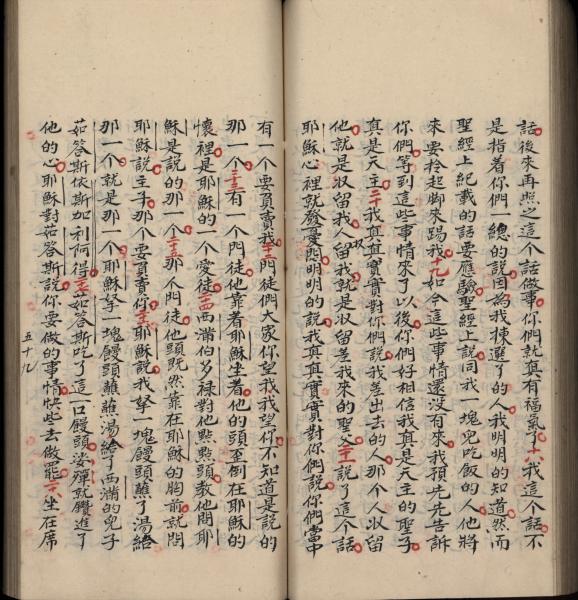 話後來再照之這个話做事你們就真有福氣了十八我這个話不
是指着你們一總的說因為我揀選了的人我明明的知道然而
聖經上紀載的話要應驗聖經上說同我一塊兒吃飯的人他將
來要拎起脚來踢我十九如今這些事情還没有來我預先先告訴
你們等到這些事情來了以後你們好相信我真是天主的聖子
真是天主二十我真真實實對你們說我差出去的人那个人収留
他就是収留我人収留我就是収留差我來的聖父二十一說了這个話
耶穌心裡就發憂悶明明的說我真真實實對你們說你們當中
有一个要買賣我二十二門徒們大家你望我我望你不知道是說的
那一个二十三有一个門徒他靠着耶穌坐着他的頭歪倒在耶穌的
懷裡是耶穌的一个愛徒二十四西滿伯多祿對他㸃㸃頭教他問耶
穌是說的那一个二十五那个門徒他頭既然靠在耶穌的胸前就問
耶穌說主耶那个要買賣你二十六耶穌說我拏一塊饅頭蘸了湯給
那一个就是那一个耶穌拏一塊饅頭蘸蘸湯給了西滿的兒子
茹答斯依斯加利阿得二十七茹答斯吃了這一口饅頭娑殫就鑽進了
他的心耶穌對茹答斯說你要做的事情快些去做罷二十八坐在席
五十九